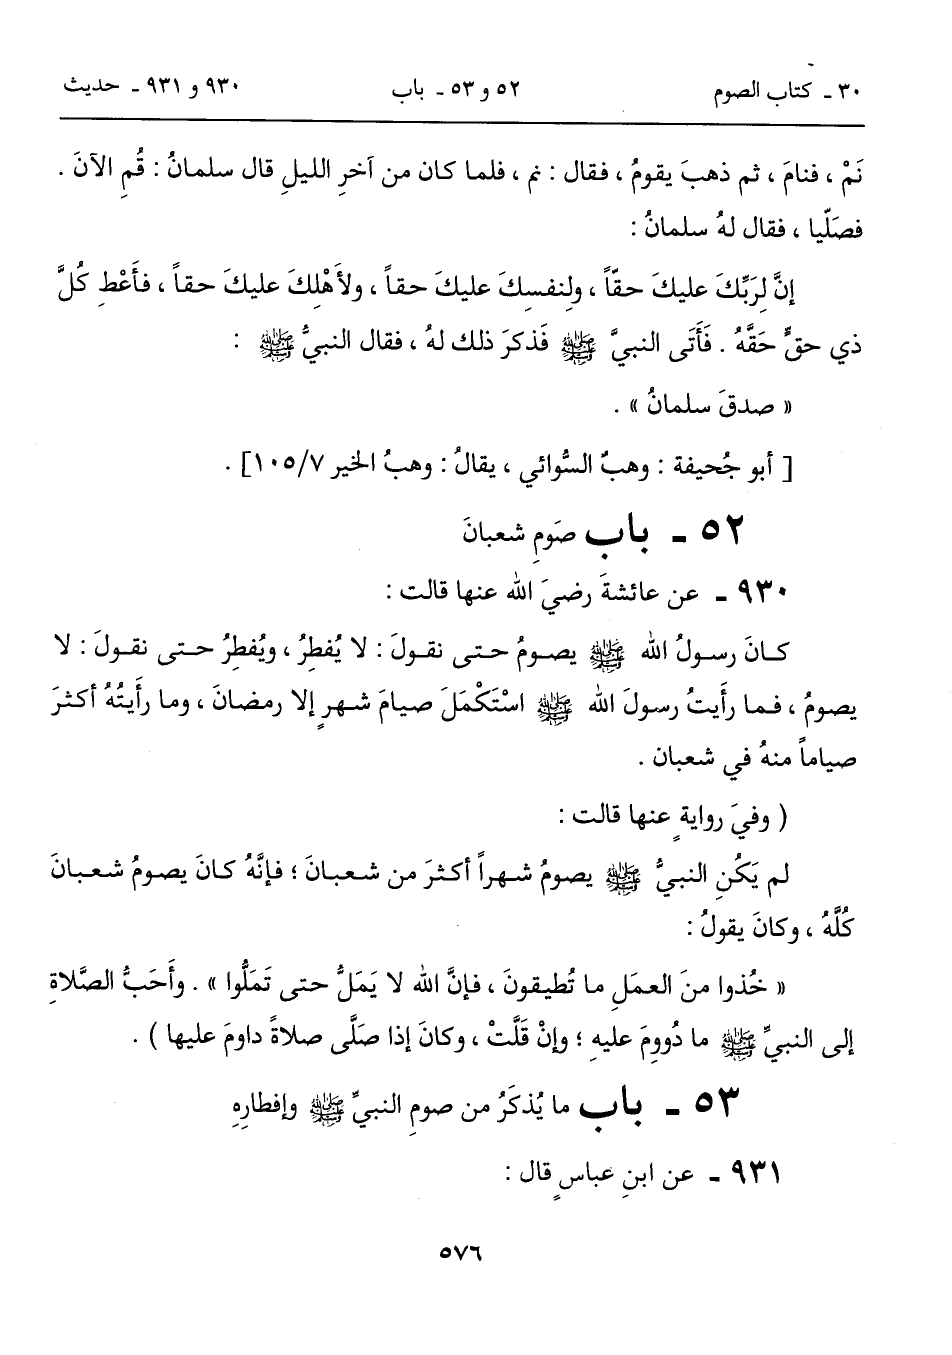 ٣٠ - كتاب الصوم ٥٢ و ٥٣ - باب ٩٣٠ و ٩٣١ - حديث
نَمْ ، فنامَ ، ثم ذهبَ يقومُ ، فقال : نم ، فلما كان من آخرِ الليلِ قال سلمانُ : قُمِ الآنَ .
فصَلّيا ، فقال لهُ سلمانُ :
إنَّ لِرَبِّكَ عليكَ حقّاً ، ولِنفسِكَ عليكَ حقاً ، ولأهْلِكَ عليكَ حقاً ، فأَعْطِ كُلَّ
ذي حقٍّ حَقَّهُ . فَأَتَى النبيَّ ﷺ فَذكرَ ذلك لهُ ، فقال النبيُّ ﷺ :
« صدقَ سلمانُ » .
[ أبو جُحيفة : وهبٌ السُّوائي ، يقالُ : وهبُ الخير ١٠٥/٧] .
٥٢ - باب صَومِ شعبانَ
٩٣٠ - عن عائشةَ رضيَ الله عنها قالت :
كـانَ رسـولُ الله ﷺ يصـومُ حـتى نقـولَ : لا يُفطِرُ ، ويُفطِرُ حـتى نقـولَ : لا
يصومُ ، فـما رأَيتُ رسولَ الله ﷺ اسْتَكْمَلَ صيامَ شهرٍ إلا رمضانَ ، وما رأَيتُهُ أكثرَ
صياماً منهُ في شعبان .
( وفيَ روايةٍ عنها قالت :
لم يَكُنِ النبيُّ ﷺ يصومُ شهراً أكثرَ من شعبانَ ؛ فإنَّهُ كانَ يصومُ شعبانَ
كُلَّهُ ، وكانَ يقولُ :
« خُذوا منَ العمَلِ ما تُطيقونَ ، فإنَّ الله لا يَمَلُّ حتى تَمَلُّوا » . وأَحَبُّ الصَّلاةِ
إلى النبيِّ ﷺ ما دُووِمَ عليهِ ؛ وإنْ قَلَّتْ ، وكانَ إذا صَلَّى صلاةً داومَ عليها ) .
٥٣ - باب ما يُذكَرُ من صومِ النبيِّ ﷺ وإفطارِهِ
٩٣١ - عن ابنِ عباسٍ قال :
٥٧٦